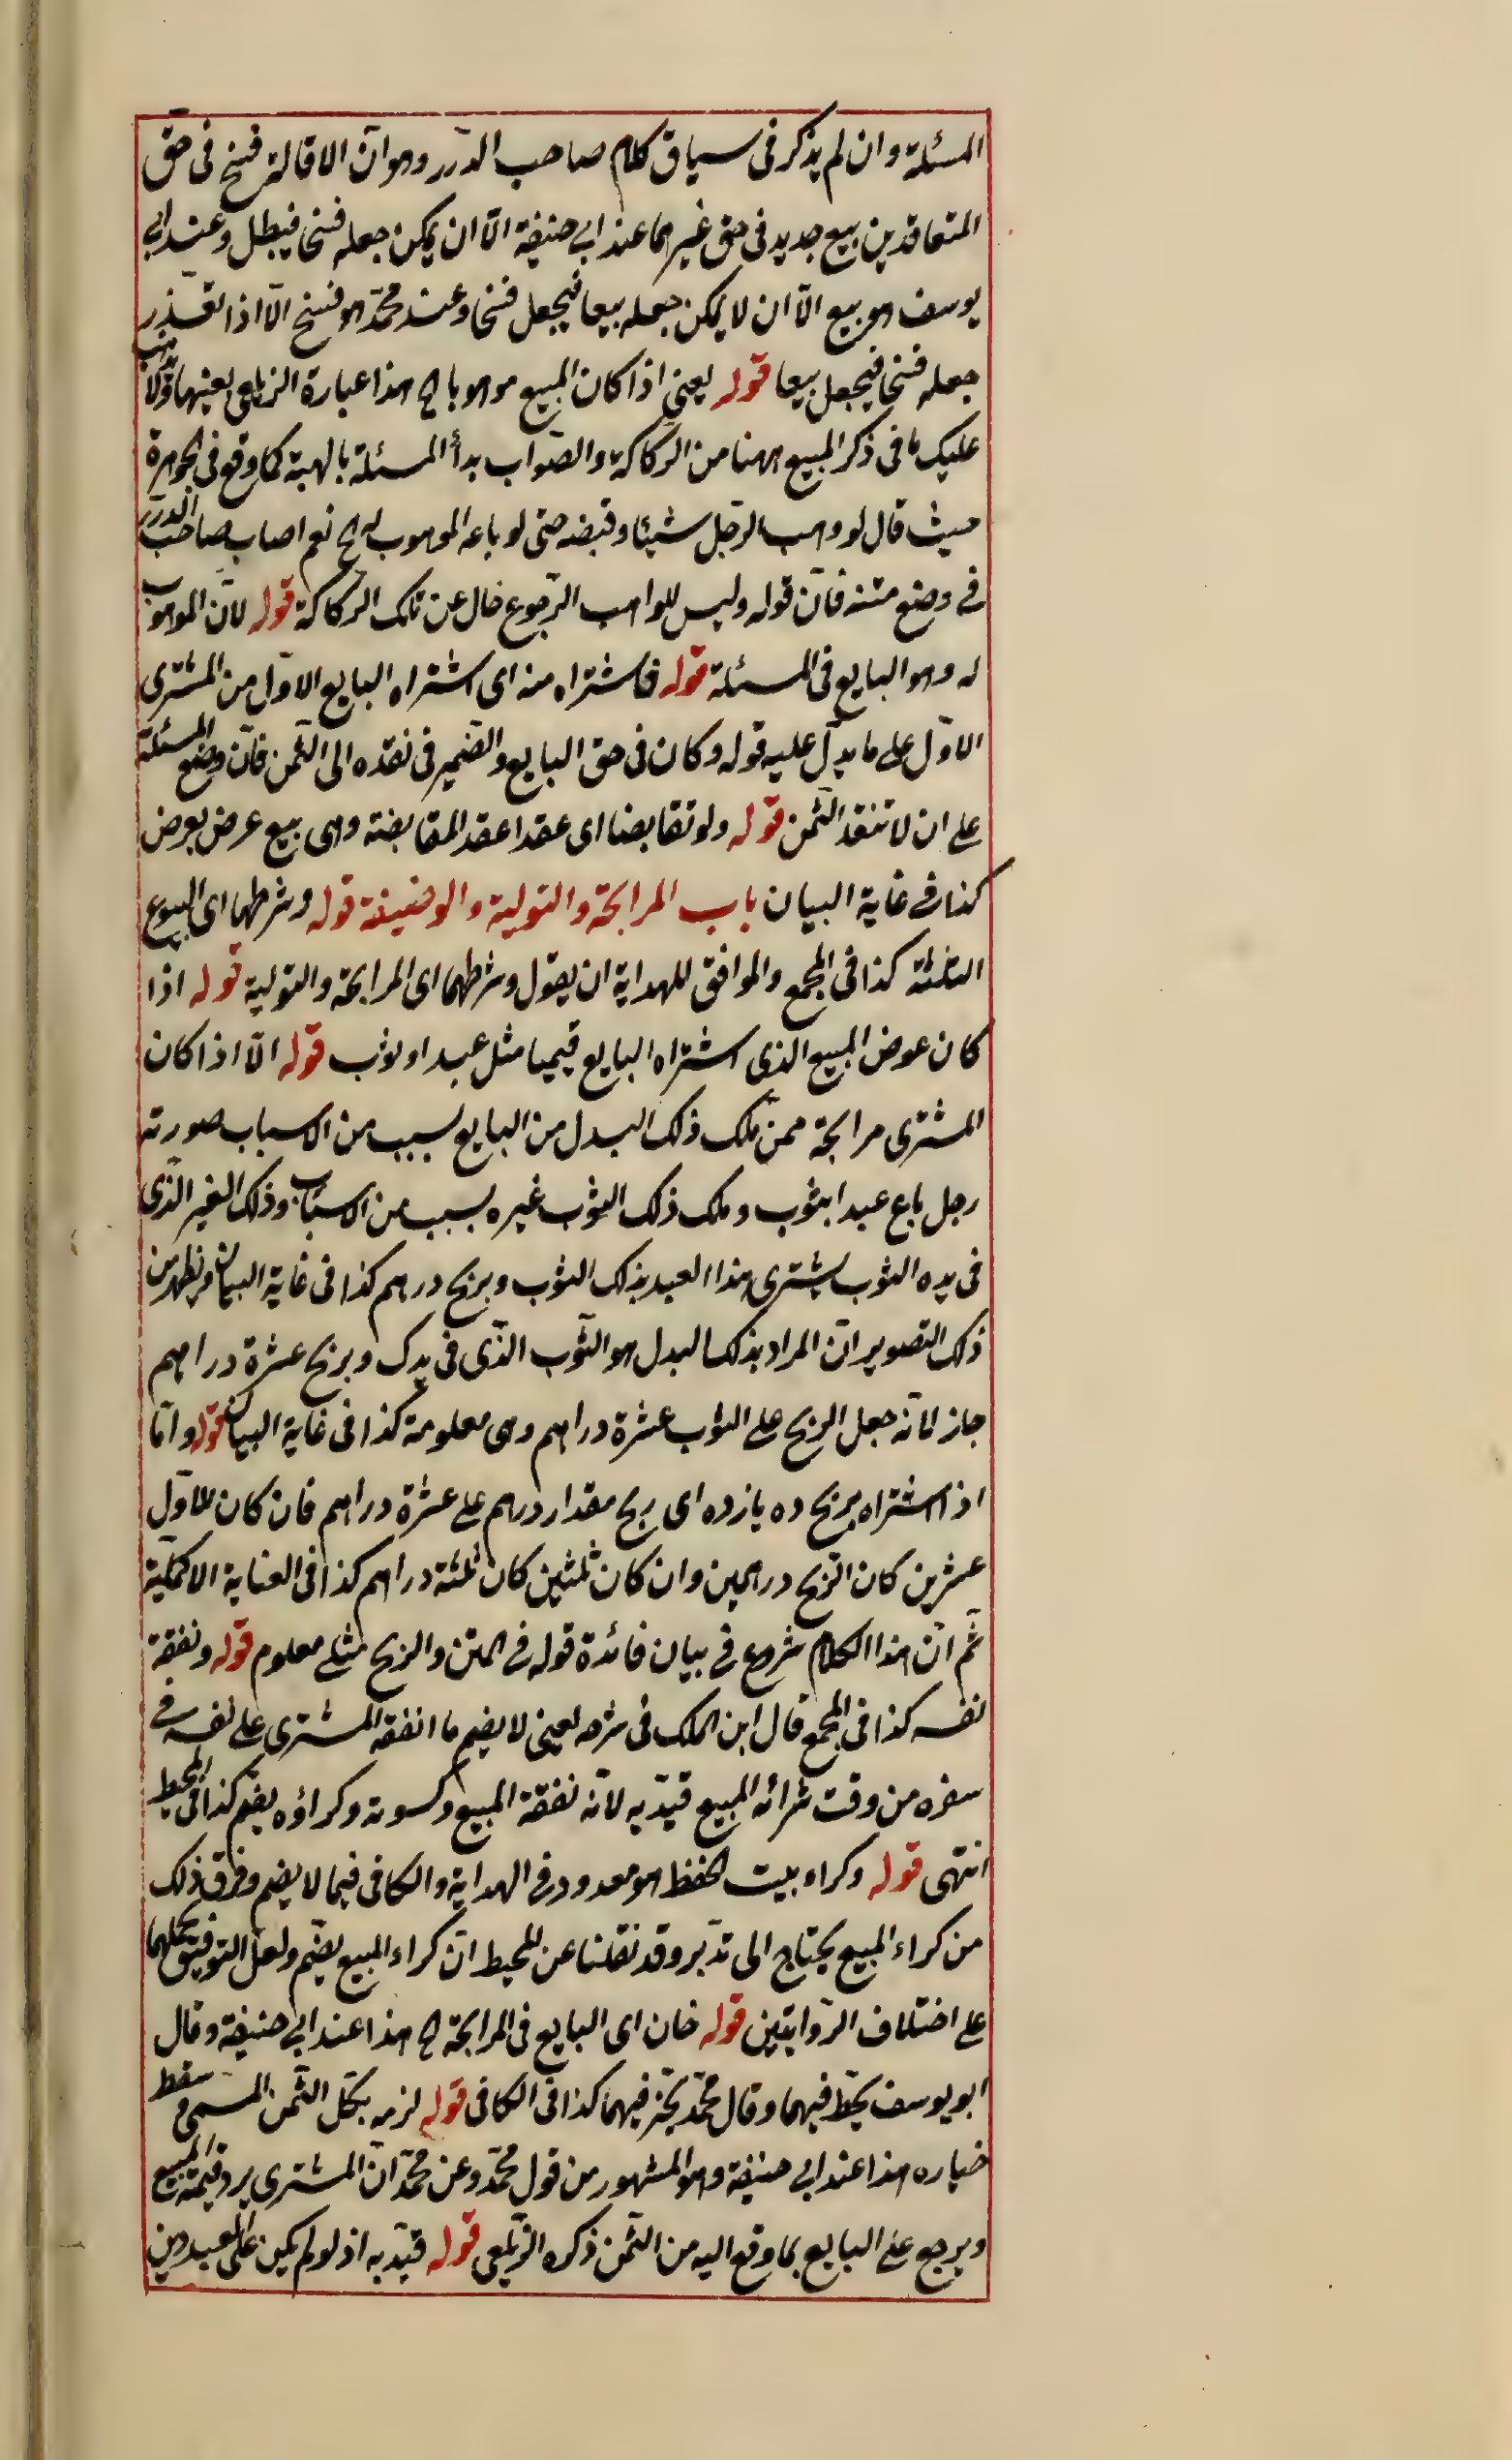 المسئلة وان لم يذكر فى سياق كلام صاحب الدّرر وهو انّ الاقالة فسخ فى حق
المتعاقدين بيع جديد فى حق غيرهما عند ابى حنيفة الّا ان يمكن جعله فسخا فيبطل وعند ابى
يوسف هو بيع الّا ان لا يمكن جعله بيعا فيجعل فسخا وعند محمّد هو فسخ الّا اذا تعذّر
جعله فسخا فيجعل بيعا قوله يعنى اذا كان المبيع موهوبا الخ هذا عبارة الزيلعى بعينها ولا يذهب
عليك ما فى ذكر المبيع ههنا من الركاكة والصّواب بدأ المسئلة بالهبة كما وقع فى الجوهرة
حيث قال لو وهب لرجل شيئا وقبضه حتى لو باعه الموهوب له الخ نعم اصاب صاحب الدّرر
فى وضع متنه فانّ قوله وليس للواهب الرّجوع خال عن تلك الركاكة قوله لانّ الموهوب
له وهو البايع فى المسئلة قوله فاشتراه منه اى اشتراه البايع الاوّل من المشترى
الاوّل على ما يدلّ عليه قوله وكان فى حق البايع والضّمير فى نقده الى الثّمن فانّ وضع المسئلة
على ان لا تنقد الثّمن قوله ولو تقابضا اى عقدا عقد المقايضة وهى بيع عرض بعرض
كذا فى غاية البيان باب المرابحة والتولية والوضيعة قوله وشرطها اى البيوع
الثلثة كذا فى المجمع والموافق للهداية ان يقول وشرطهما اى المرابحة والتولية قوله اذا
كان عوض المبيع الذى اشتراه البايع قيميا مثل عبد او ثوب قوله الّا اذا كان
المشترى مرابحة ممن ملك ذلك البدل من البايع بسبب من الاسباب صورته
رجل باع عبدا بثوب وملك ذلك الثوب غيره بسبب من الاسباب وذلك الغير الّذى
فى يده الثوب يشترى هذا العبد بذلك الثوب وبربح درهم كذا فى غاية البيان ويظهر من
ذلك التصوير انّ المراد بذلك البدل هو الثّوب الّذى فى يدك وبربح عشرة دراهم
جاز لانّه جعل الربح على الثوب عشرة دراهم وهى معلومة كذا فى غاية البيان قوله وامّا
اذا اشتراه بربح ده يازده اى ربح مقدار درهم على عشرة دراهم فان كان للاوّل
عشرين كان الرّبح درهمين وان كان ثلثين كان ثلثة دراهم كذا فى العناية الاكملية
ثم انّ هذا الكلام شروع فى بيان فائدة قوله فى المتن والربح مثلى معلوم قوله ونفقة
نفسه كذا فى المجمع قال ابن الملك فى شرحه يعنى لا يضم ما انفقه المشترى على نفسه فى
سفره من وقت شرائه المبيع قيّد به لانّه نفقة المبيع وكسوته وكراؤه يضم كذا فى المحيط
انتهى قوله وكراء بيت الحفظ هو معدود فى الهداية والكافى فيما لا يضم وفرق ذلك
من كراء المبيع يحتاج الى تدبّر وقد نقلنا عن المحيط انّ كراء المبيع يضم ولعلّ التوفيق بحملهما
على اختلاف الرّوايتين قوله خان اى البايع فى المرابحة الخ هذا عند ابى حنيفة وقال
ابو يوسف يحطّ فيهما وقال محمّد يخيّر فيهما كذا فى الكافى قوله لزمه بكلّ الثّمن المسمى وسقط
خياره هذا عند ابى حنيفة وهو المشهور من قول محمّد وعن محمّد انّ المشترى يرد قيمة المبيع
ويرجع على البايع بما وقع اليه من الثّمن ذكره الزّيلعى قوله قيّد به اذ لو لم يكن على العبد دين